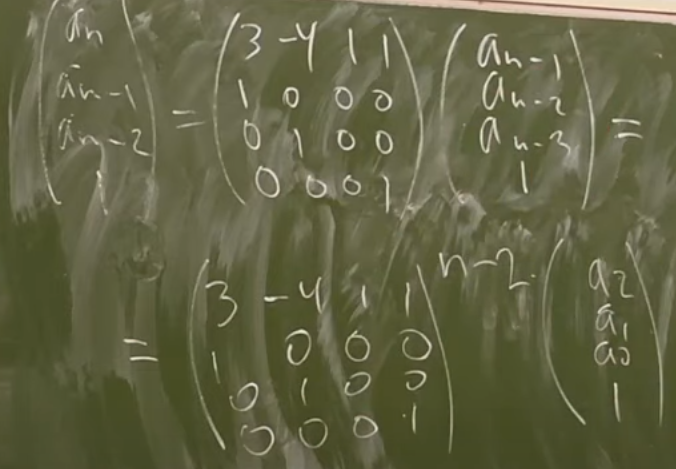 (aₙ aₙ₋₁ aₙ₋₂ 1)ᵀ = (3 -4 1 1; 1 0 0 0; 0 1 0 0; 0 0 0 1) (aₙ₋₁ aₙ₋₂ aₙ₋₃ 1)ᵀ =
= (3 -4 1 1; 1 0 0 0; 0 1 0 0; 0 0 0 1)ⁿ⁻² · (a₂ a₁ a₀ 1)ᵀ